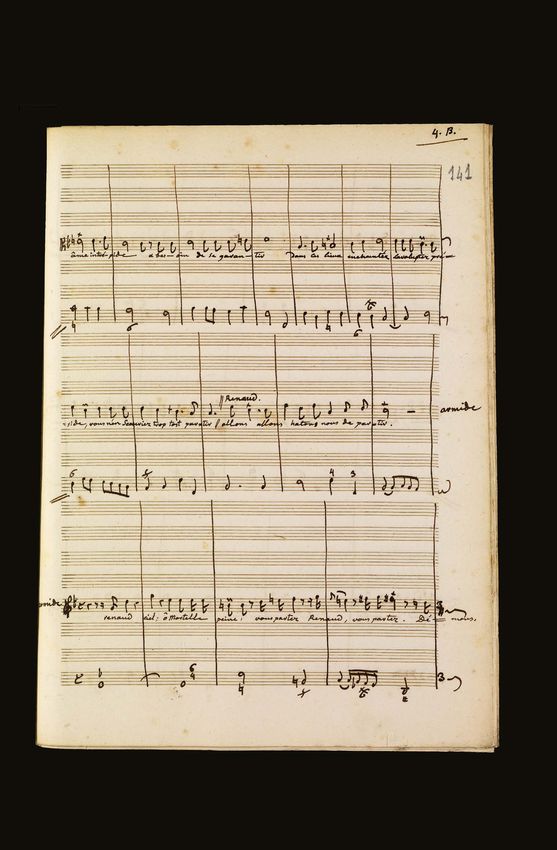 4. B.
141
âme intrépide a besoin de se garantir Dans ces lieux enchantez la volupté pré=
=side, vous n'en scauriez trop tost partir
Renaud.
allons allons hatons nous de partir.
armide
armide
renaud ciel; ô Mortelle peine! vous partez Renaud, vous partez. Dé= mons,